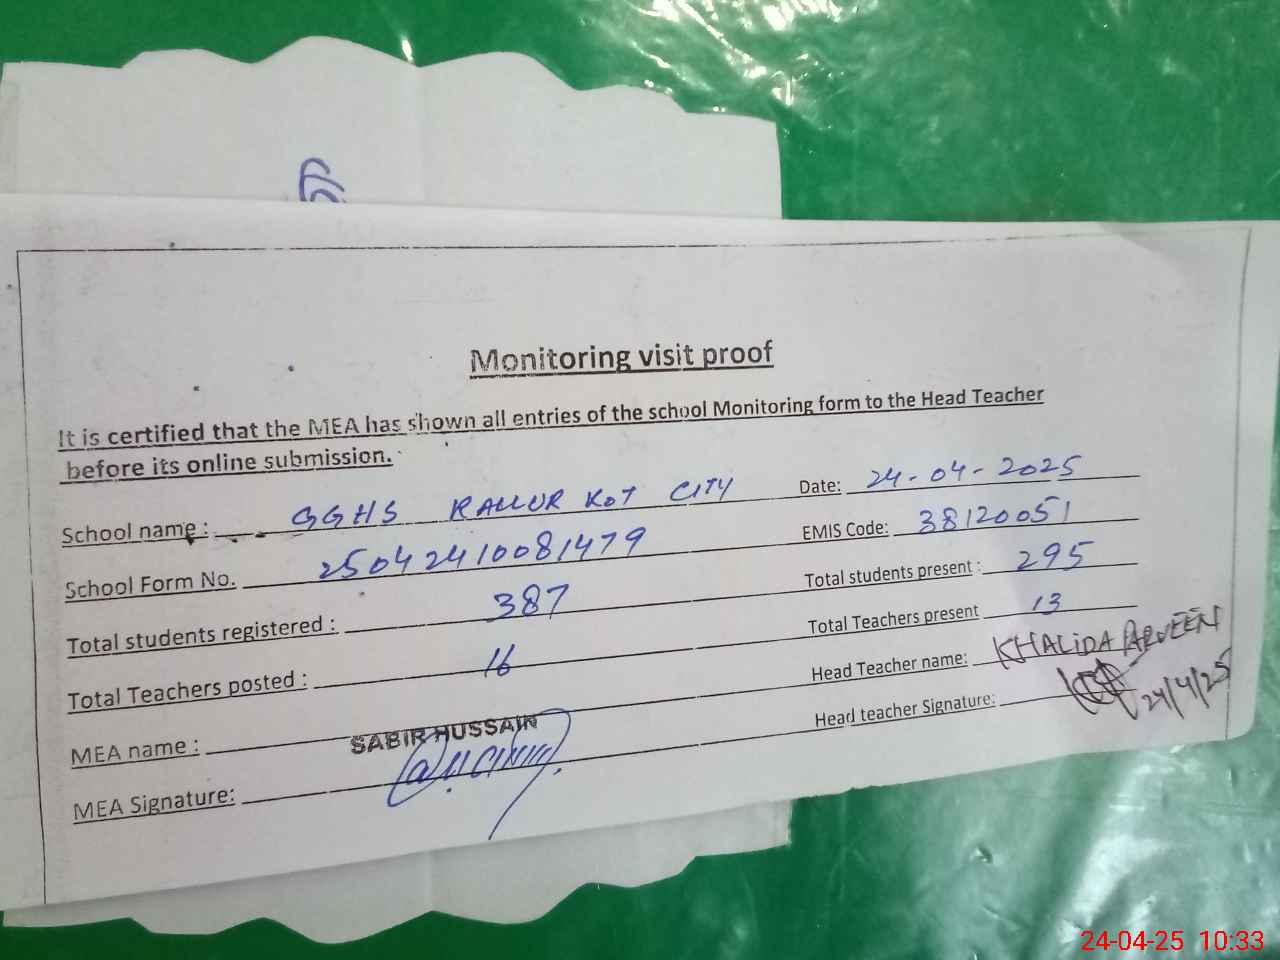 Monitoring visit proof
It is certified that the MEA has shown all entries of the school Monitoring form to the Head Teacher
before its online submission.
School name : GGHS KALLUR KOT CITY Date: 24-04-2025
School Form No. 25042410081479 EMIS Code: 38120051
Total students registered : 387 Total students present : 295
Total Teachers posted : 16 Total Teachers present 13
MEA name : SABIR HUSSAIN Head Teacher name: KHALIDA PARVEEN
MEA Signature: Head teacher Signature: 24/4/25
24-04-25 10:33